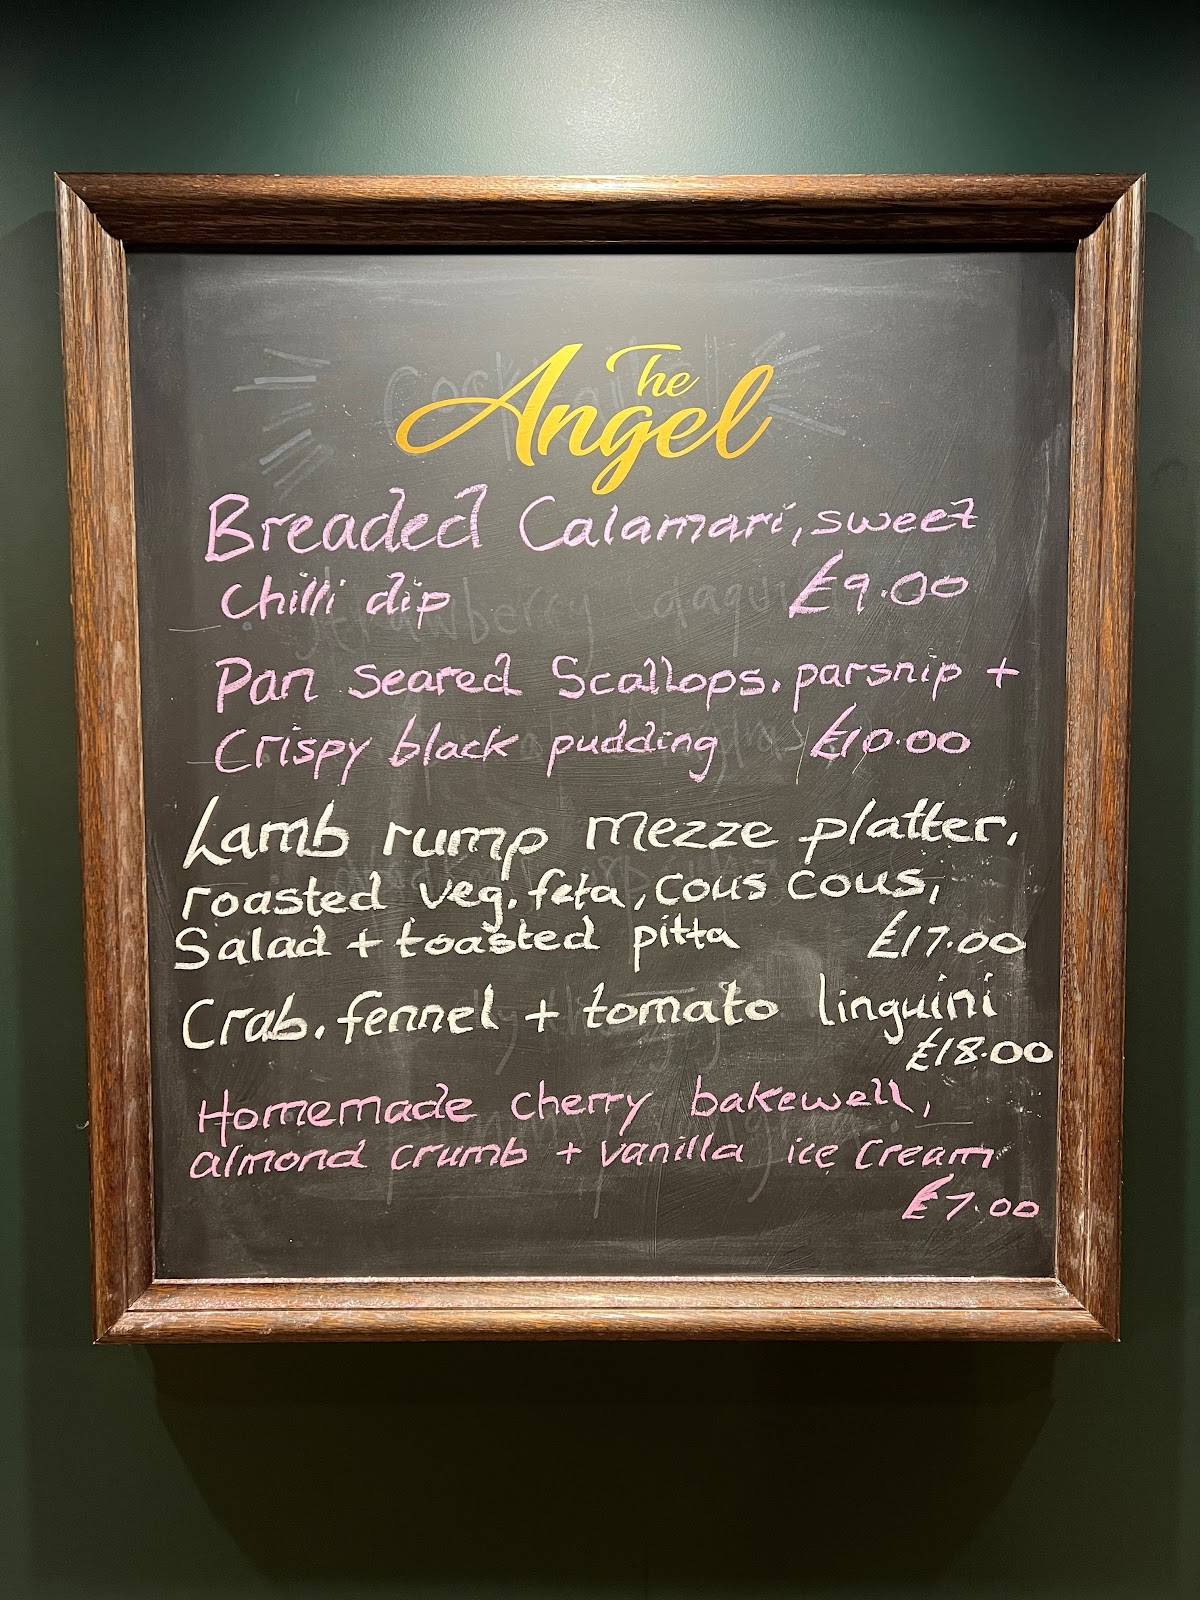 The
Angel
Breaded Calamari, sweet
Chilli dip £9.00
Pan seared Scallops, parsnip +
Crispy black pudding £10.00
Lamb rump mezze platter,
roasted veg, feta, cous cous,
Salad + toasted pitta £17.00
Crab, fennel + tomato linguini
£18.00
Homemade cherry bakewell,
almond crumb + vanilla ice cream
£7.00